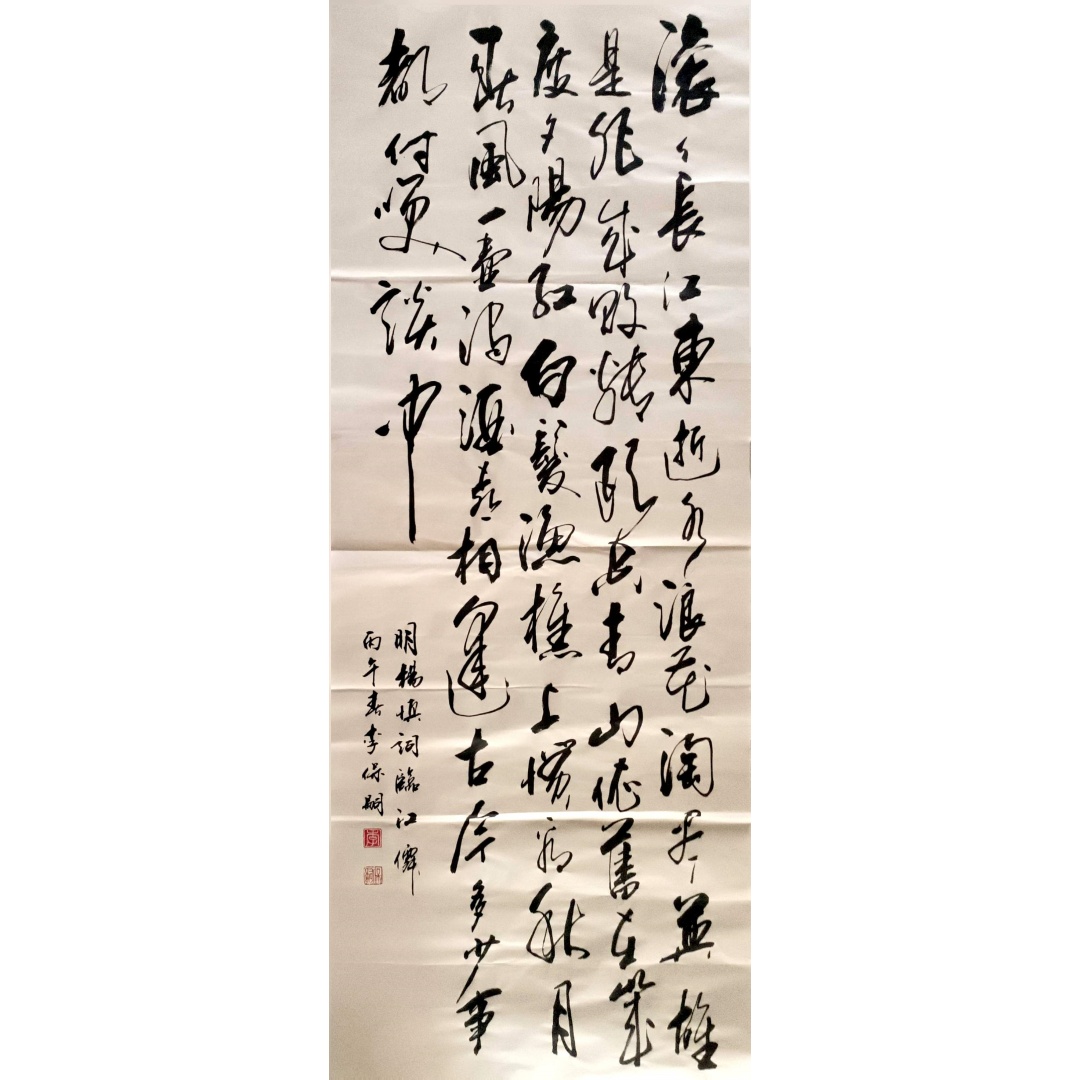 滚々長江東逝水浪花淘尽英雄
是非成敗轉頭空青山依舊在幾
度夕陽紅白髮漁樵江上慣看秋月
春風一壺濁酒喜相逢古今多少事
都付笑談中
明楊慎詞臨江僊
丙午春李保嗣